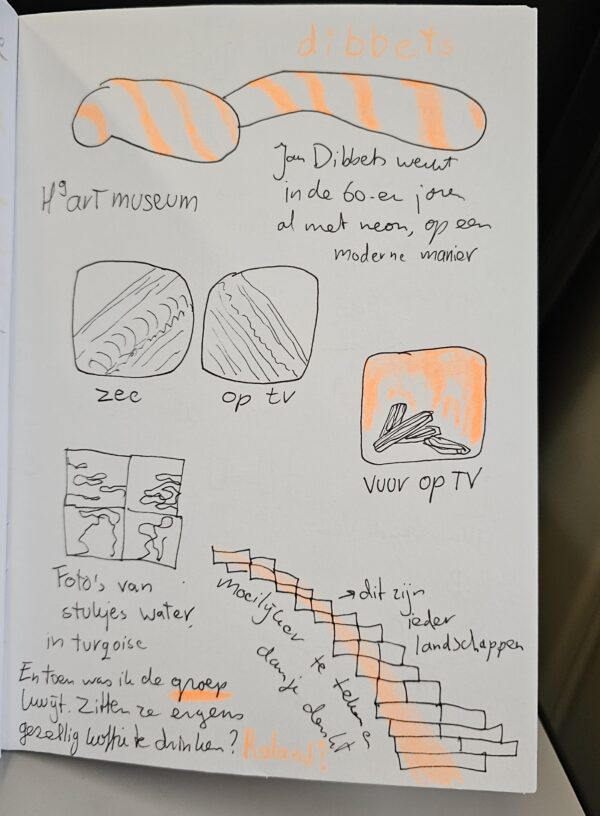 dibbets
Jan Dibbets werkt
in de 60-er jaren
al met neon, op een
moderne manier
H'art museum
zee
op tv
vuur op TV
Foto's van
stukjes water,
in turqoise
→ dit zijn
ieder
landschappen
moeilijker te tekenen
dan je denkt
En toen was ik de groep
kwijt. Zitten ze ergens
gezellig koffie te drinken? Roland?